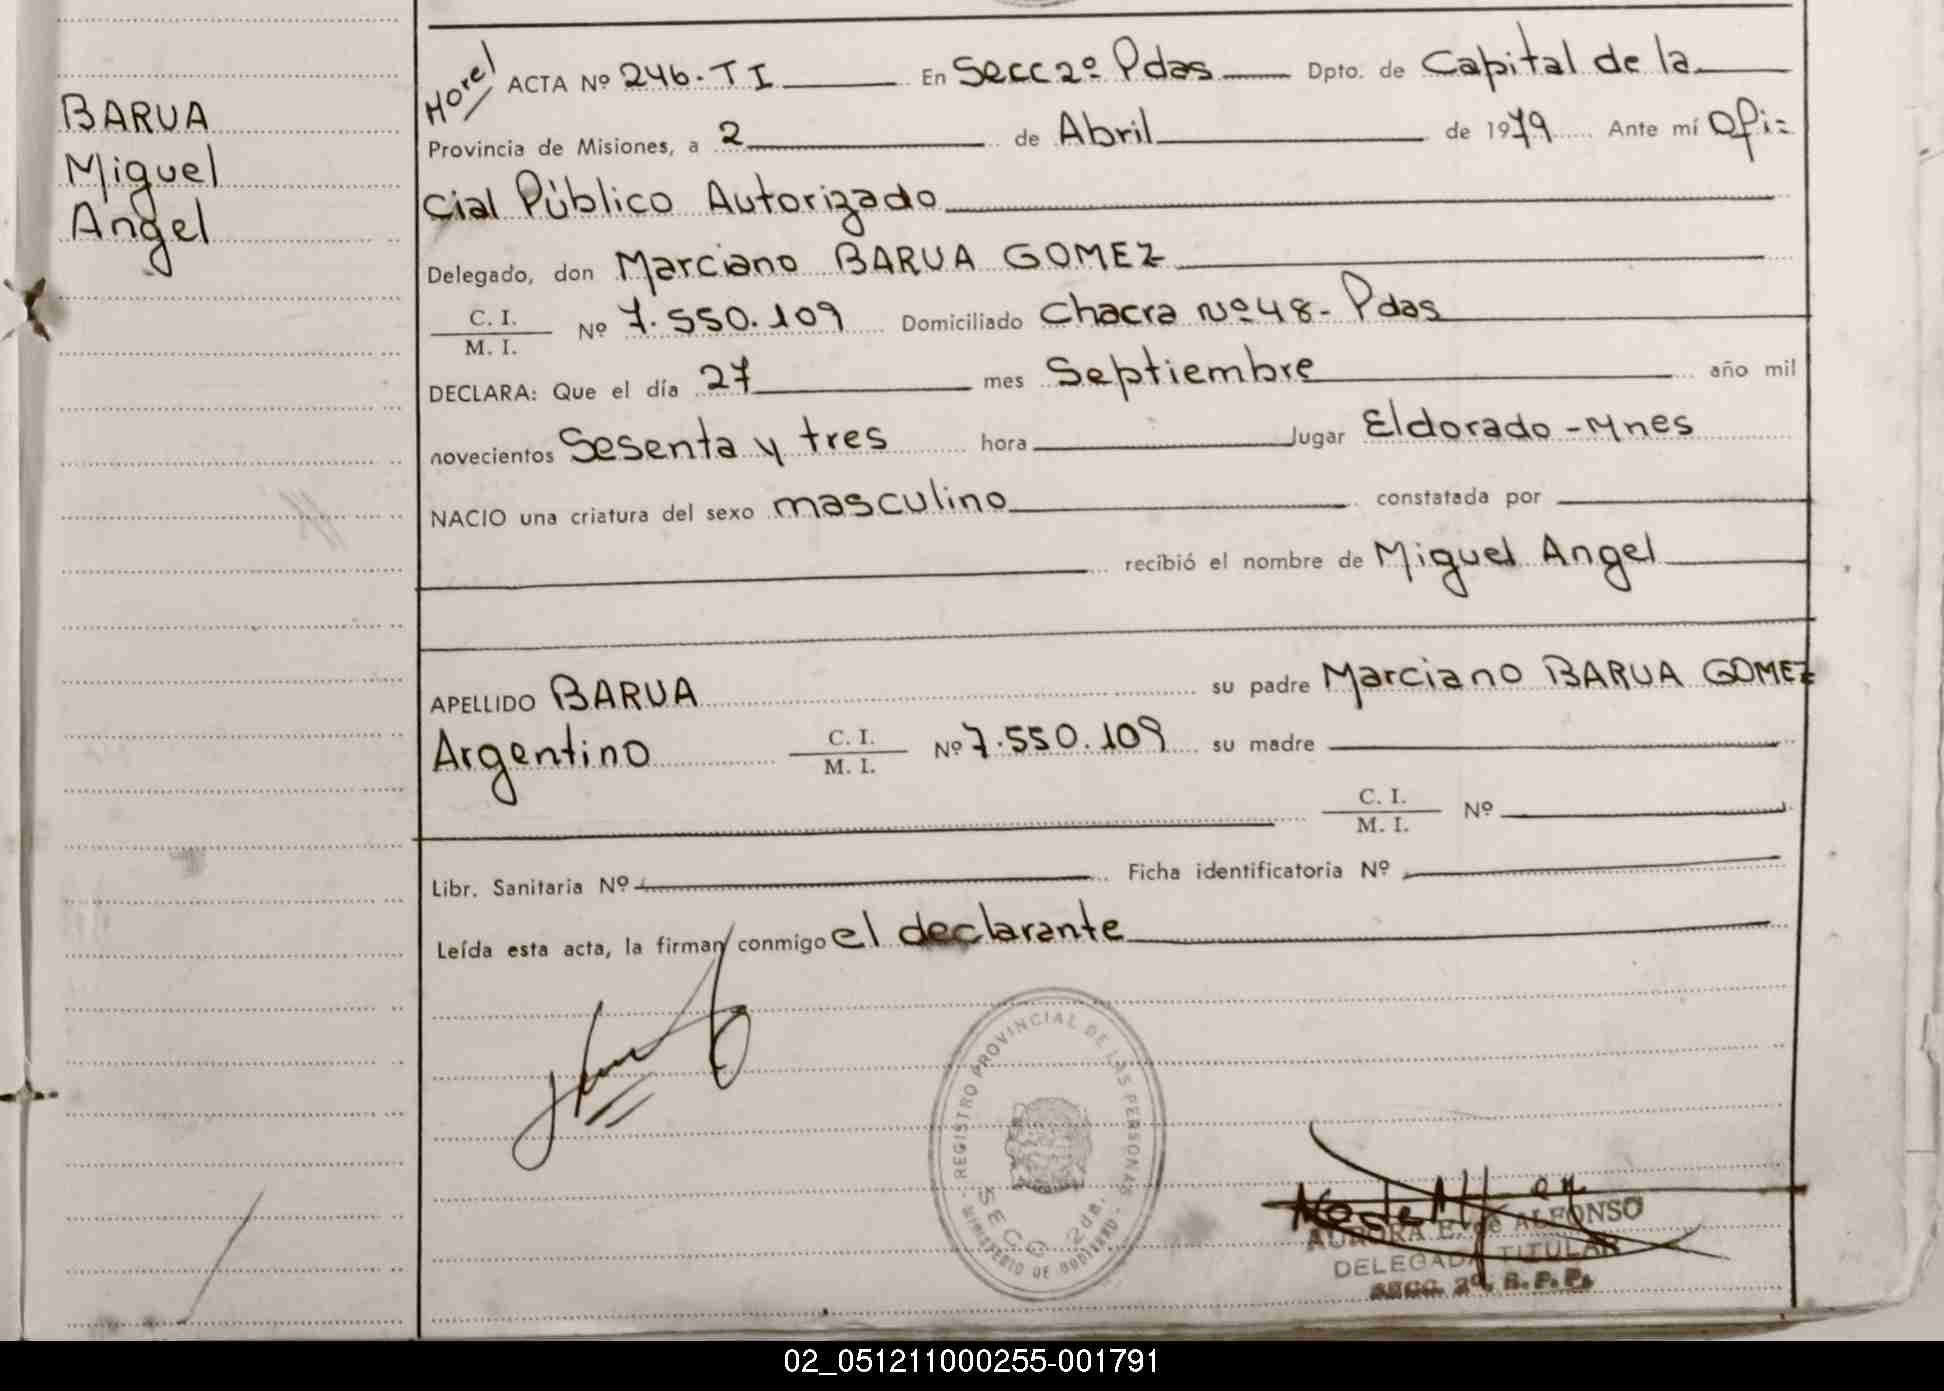 BARUA
Miguel
Angel
Morel
ACTA Nº 246. T I En Secc 2º Pdas Dpto. de Capital de la
Provincia de Misiones, a 2 de Abril de 1979 Ante mí Ofi=
cial Público Autorizado
Delegado, don Marciano BARUA GOMEZ
C. I.
M. I.
Nº 7.550.109 Domiciliado Chacra Nº 48 - Pdas
DECLARA: Que el día 27 mes Septiembre año mil
novecientos Sesenta y tres hora lugar Eldorado - Mnes
NACIO una criatura del sexo masculino constatada por
recibió el nombre de Miguel Angel
APELLIDO BARUA su padre Marciano BARUA GOMEZ
Argentino C. I.
M. I. Nº 7.550.109 su madre
C. I.
M. I. Nº
Libr. Sanitaria Nº Ficha identificatoria Nº
Leída esta acta, la firman conmigo el declarante
REGISTRO PROVINCIAL DE LAS PERSONAS
SECC 2da.
MINISTERIO DE GOBIERNO
AURORA E. de ALFONSO
DELEGADA TITULAR
SECC. 2ª. R. P. P.
02_051211000255-001791